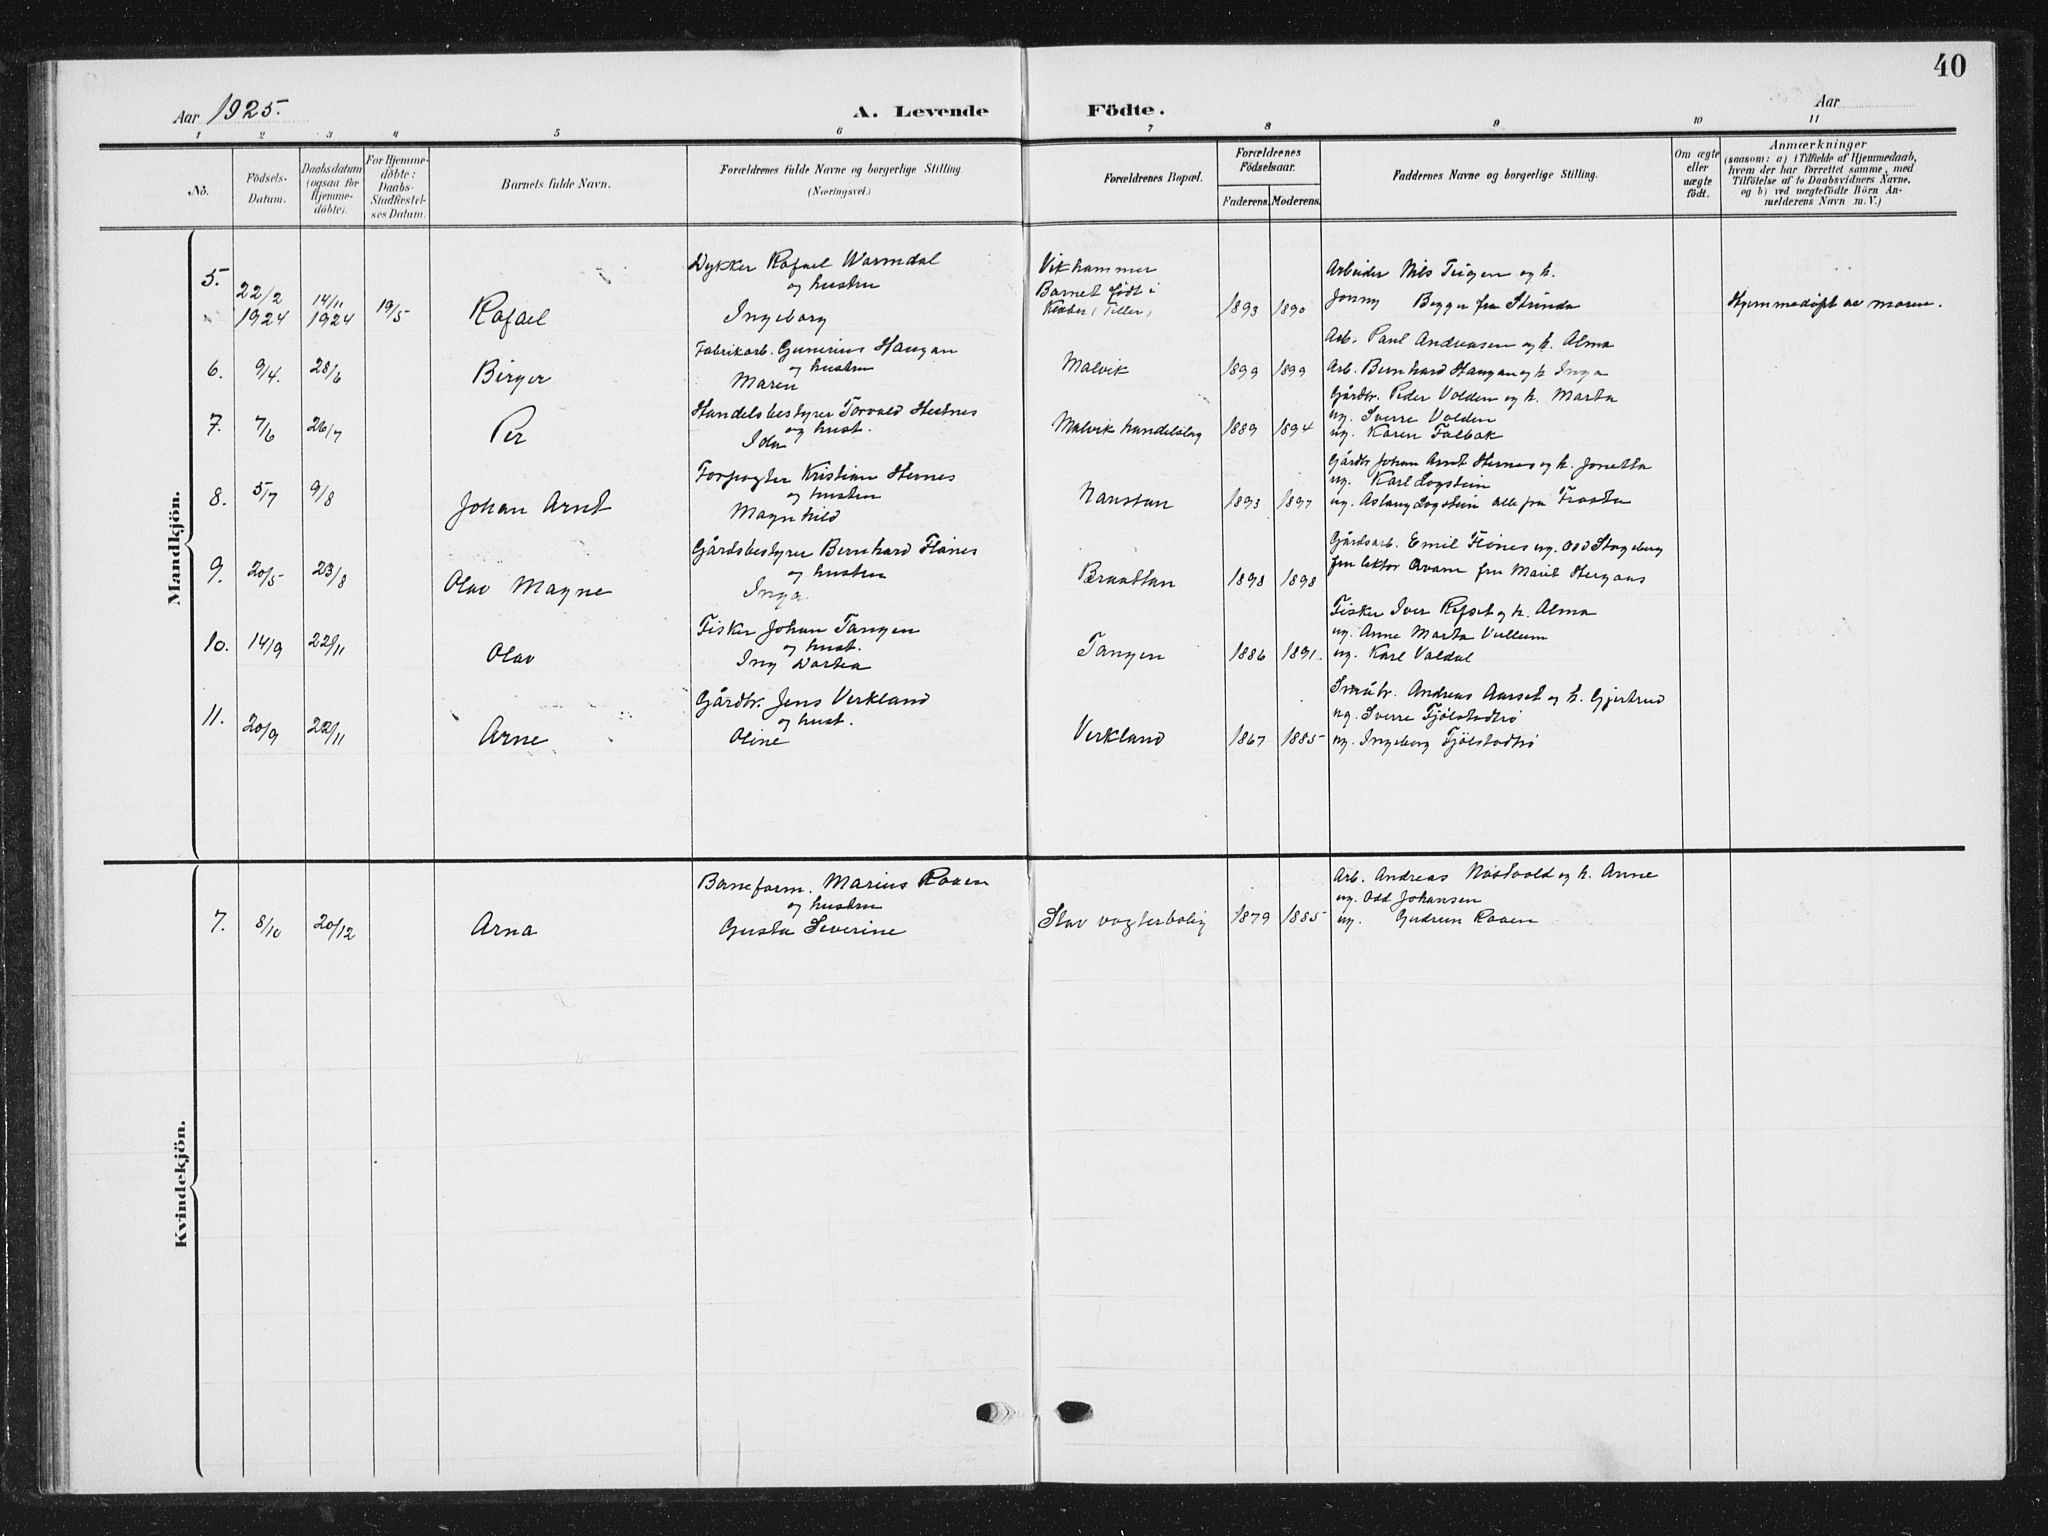 40
Aar 1925.
A. Levende Födte.
Aar
1 2 3 4 5 6 7 8 9 10 11
No.
Födsels-
Datum.
Daabsdatum
(ogsaa for
Hjemme-
döbte).
For Hjemme-
döbte:
Daabs-
Stadfestel-
ses Datum.
Barnets fulde Navn.
Forældrenes fulde Navne og borgerlige Stilling.
(Næringsvei.)
Forældrenes Bopæl.
Forældrenes
Födselsaar.
Faderens. Moderens.
Faddernes Navne og borgerlige Stilling.
Om ægte
eller
uægte
födt.
Anmærkninger
(saasom: a) i Tilfælde af Hjemmedaab,
hvem der har forrettet samme, med
Tilföielse af to Daabsvidners Navne,
og b) ved uægtefödte Börn An-
melderens Navn m. V.)
Mandkjön.
5.
22/2
1924
14/11
1924
19/5
Rafael
Dykker Rafael Warmdal
og hustru
Ingeborg
Vikhammer
Barnet født i
Klæbu (Tiller)
1893 1890
Arbeider Nils Teigen og h.
Jonny Begge fra Strinda
Hjemmedøpt av moren.
6. 9/4. 28/6
Birger
Fabrikarb. Gunerius Haugan
og hustru
Maren
Malvik
1899 1899
Arb. Paul Andreasen og h. Alma
Arb. Bernhard Haugan og h. Inga
7. 7/6 26/7
Per
Handelsbestyrer Torvald Hestnes
og hust.
Ida
Malvik handelslag
1889 1894
Gårdbr. Peder Volden og h. Marta
ug. Sverre Volden
ug. Karen Falbak
8. 5/7 9/8
Johan Arnt
Forpagter Kristian Hernes
og hustru
Magnhild
Nanstan
1893 1897
Gårdbr Johan Arnt Hernes og h. Jonetta
ug. Karl Logstein
ug. Aslaug Logstein alle fra Frosta
9. 20/5 23/8
Olav Magne
Gårdsbestyrer Bernhard Flønes
og hustru
Inga
Braattan
1898 1898
Gårdsarb. Emil Flønes ug. Odd
fru lektor Qvam fru Marit
10. 14/9 22/11
Olav
Fisker Johan Tangen
og hust.
Ing Dortea
Tangen
1886 1891.
Fisker Iver Refset og h. Alma
ug. Anne Marta Vullum
ug. Karl Valdal
11. 20/9 22/11
Arne
Gårdbr. Jens Verkland
og hust.
Oline
Verkland
1867 1885
Småbr. Andreas Aarset og h. Gjertrud
ug. Sverre Fjølstadtrø
ug. Ingeborg Fjølstadtrø
Kvindekjön.
7. 8/10 20/12
Arna
Baneform. Marius Raaen
og hustru
Gusta Severine
Stav vogterbolig
1879 1885
Arb. Andreas Nøstvold og h. Anne
ug. Odd Johansen
ug. Gudrun Raaen